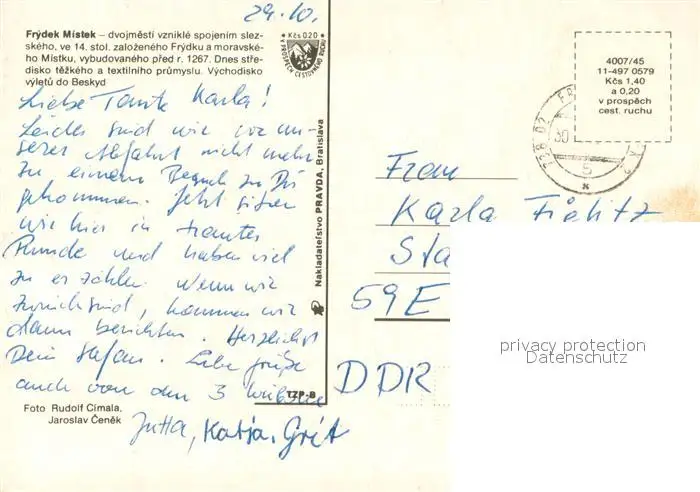 29.10.
Frýdek Místek – dvojměstí vzniklé spojením slez-
ského, ve 14. stol. založeného Frýdku a moravské-
ho Místku, vybudovaného před r. 1267. Dnes stře-
disko těžkého a textilního průmyslu. Východisko
výletů do Beskyd
Kčs 0.20
V PROSPĚCH CESTOVNÍHO RUCHU
Liebe Tante Karla!
Leider sind wir vor un-
serer Abfahrt nicht mehr
zu einem Besuch zu Dir
gekommen. Jetzt sitzen
wir hier in trauter
Runde und haben viel
zu erzählen. Wenn wir
zurück sind, kommen wir
dann berichten. Herzlichst
Dein Stefan. Liebe Grüße
auch von den 3 Weibern
Jutta, Katja, Grit
Foto Rudolf Címala,
Jaroslav Čeněk
Nakladatelství PRAVDA, Bratislava
TZP-B
4007/45
11-497 0579
Kčs 1,40
a 0,20
v prospěch
cest. ruchu
Frau
Karla Fiblitz
Sta
59E
DDR
privacy protection
Datenschutz